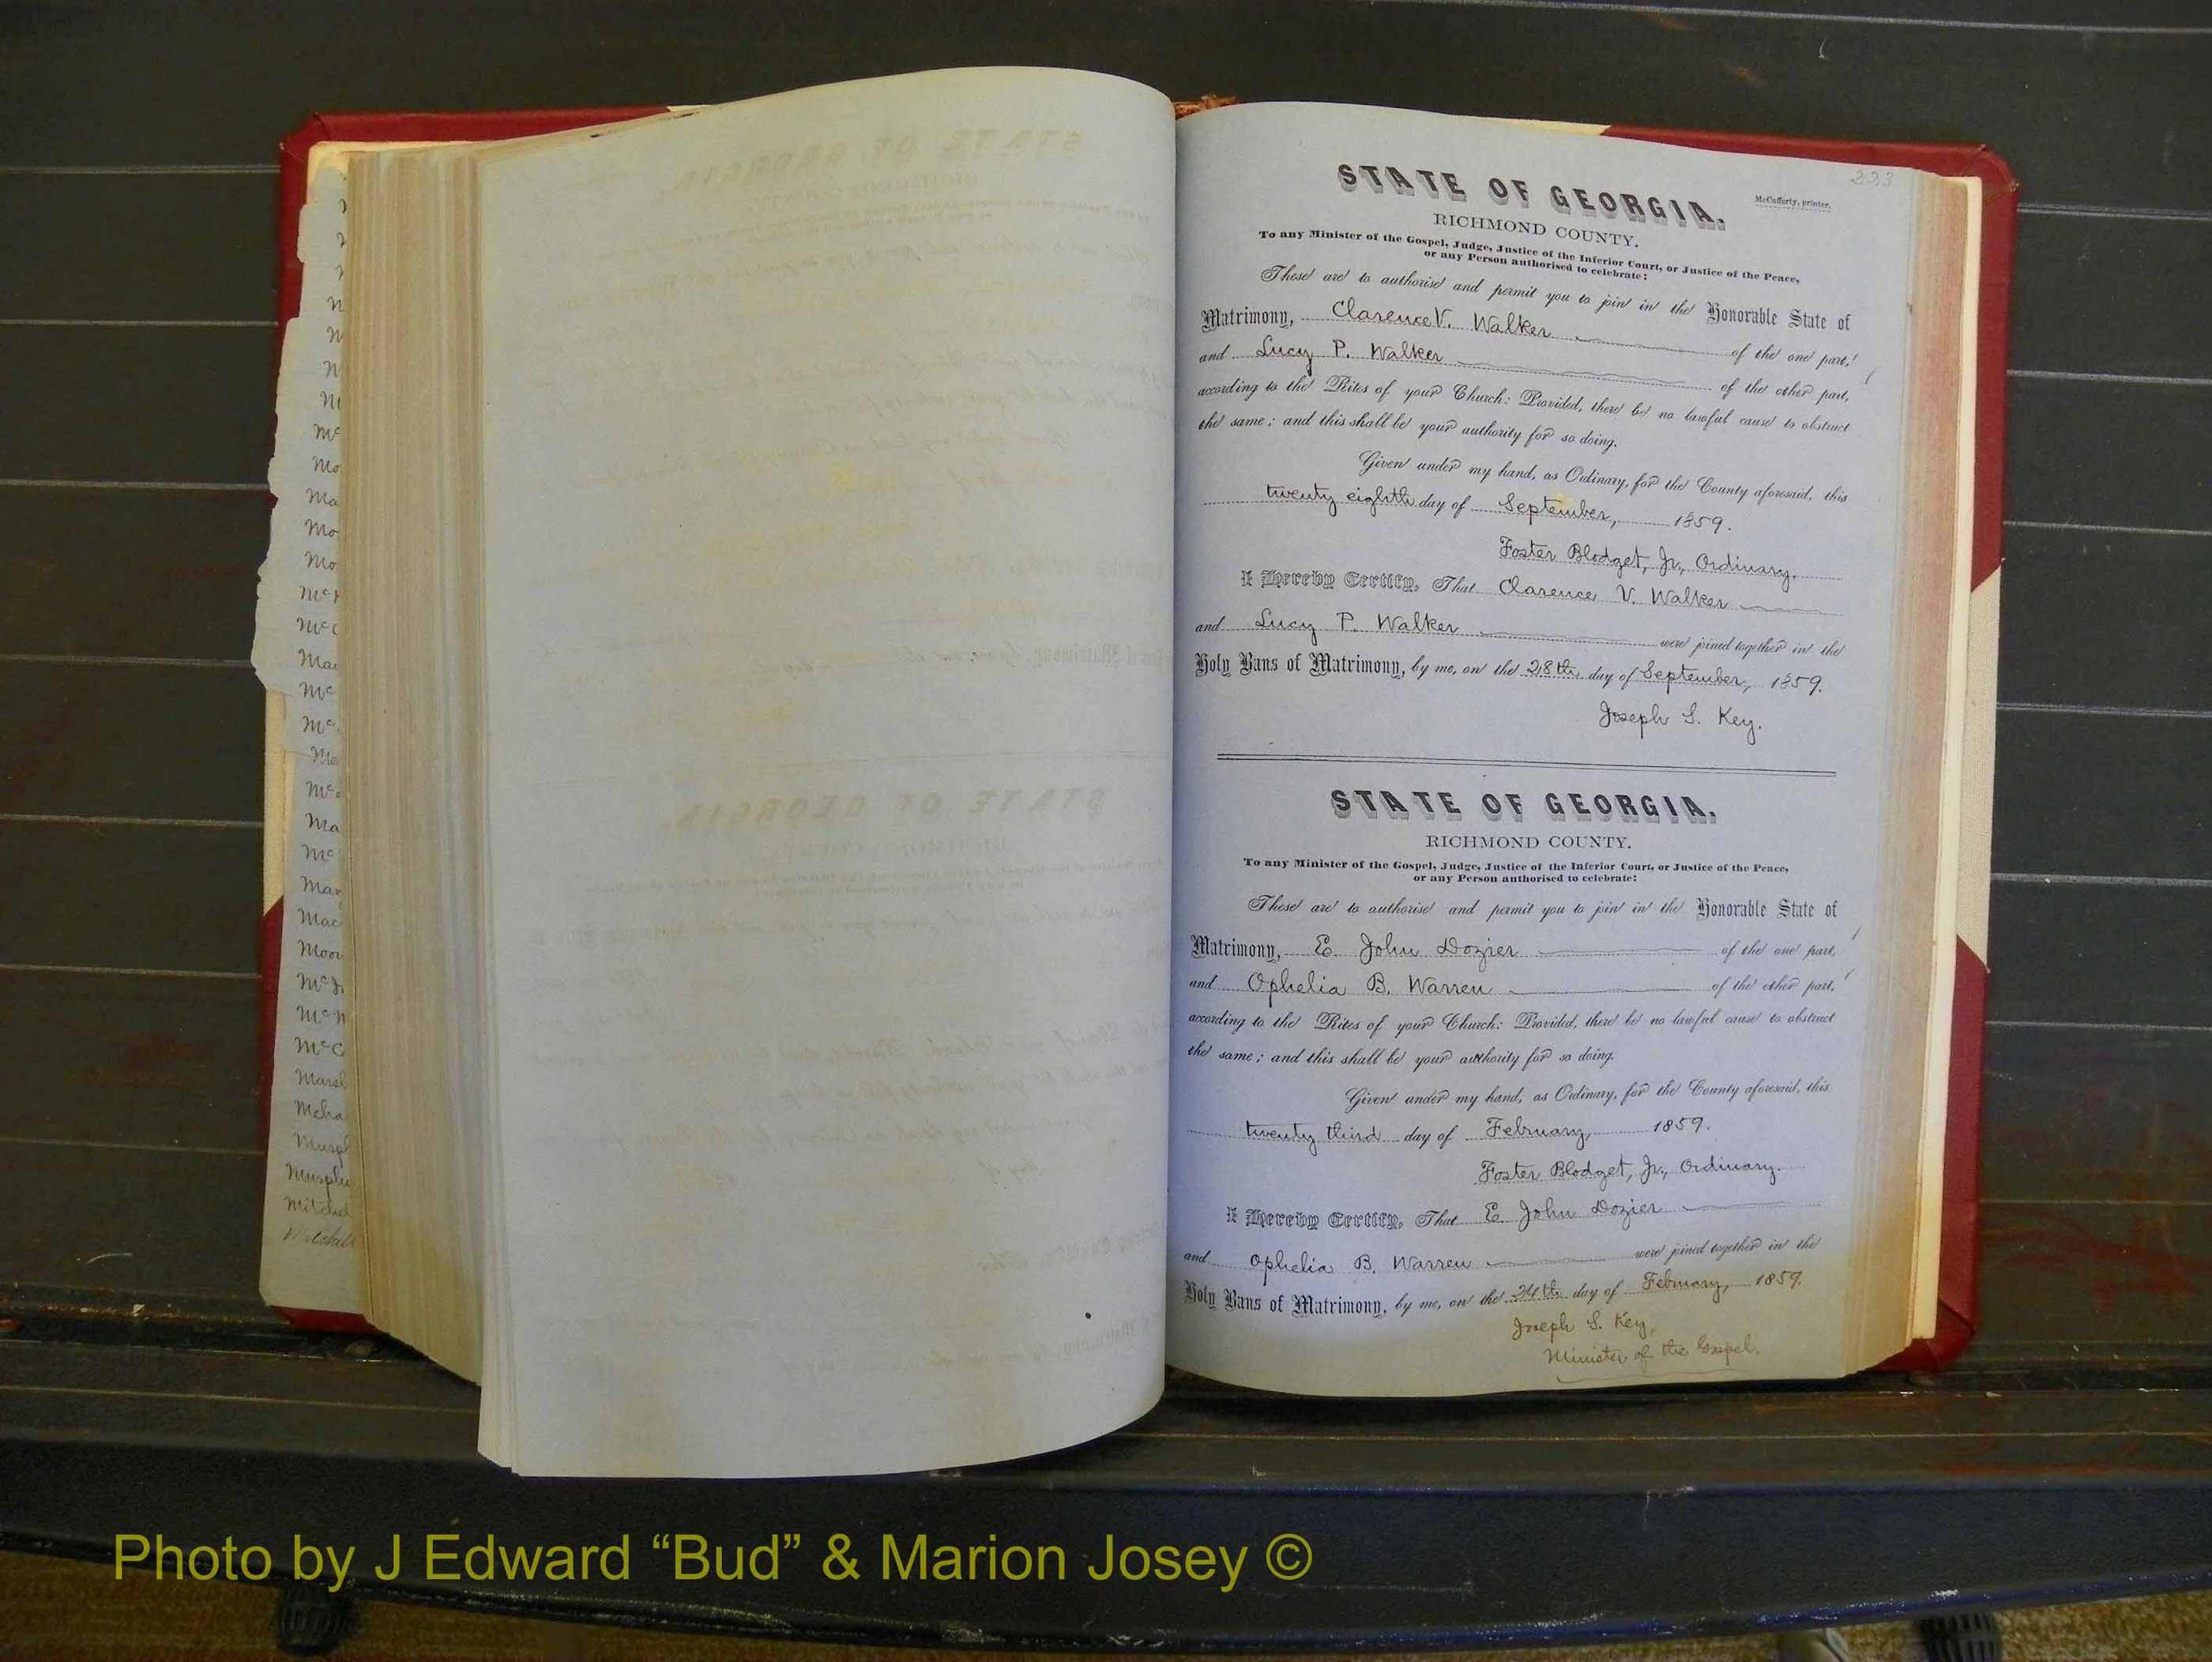 m
Mc
Mo
Ma
Mo
Mo
Mc
McC
Mar
Mc
Mc
Me
Mc
Ma
Mc
Mar
Mac
Moor
McC
Marsl
Meha
Murph
Mitchel
Mitchell
223
STATE OF GEORGIA.
McCafferty, printer.
RICHMOND COUNTY.
To any Minister of the Gospel, Judge, Justice of the Inferior Court, or Justice of the Peace,
or any Person authorised to celebrate:
These are to authorise and permit you to join in the Honorable State of
Matrimony, Clarence V. Walker of the one part,
and Lucy P. Walker of the other part,
according to the Rites of your Church: Provided, there be no lawful cause to obstruct
the same; and this shall be your authority for so doing.
Given under my hand, as Ordinary, for the County aforesaid, this
twenty eighth day of September, 1859.
Foster Blodget, Jr., Ordinary.
I Hereby Certify, That Clarence V. Walker
and Lucy P. Walker were joined together in the
Holy Bans of Matrimony, by me, on the 28th day of September, 1859.
Joseph S. Key.
STATE OF GEORGIA.
RICHMOND COUNTY.
To any Minister of the Gospel, Judge, Justice of the Inferior Court, or Justice of the Peace,
or any Person authorised to celebrate:
These are to authorise and permit you to join in the Honorable State of
Matrimony, E. John Dozier of the one part,
and Ophelia B. Warren of the other part,
according to the Rites of your Church: Provided, there be no lawful cause to obstruct
the same; and this shall be your authority for so doing.
Given under my hand, as Ordinary, for the County aforesaid, this
twenty third day of February 1859.
Foster Blodget, Jr., Ordinary.
I Hereby Certify, That E. John Dozier
and Ophelia B. Warren were joined together in the
Holy Bans of Matrimony, by me, on the 24th day of February, 1859.
Joseph S. Key,
Minister of the Gospel.
Photo by J Edward “Bud” & Marion Josey ©